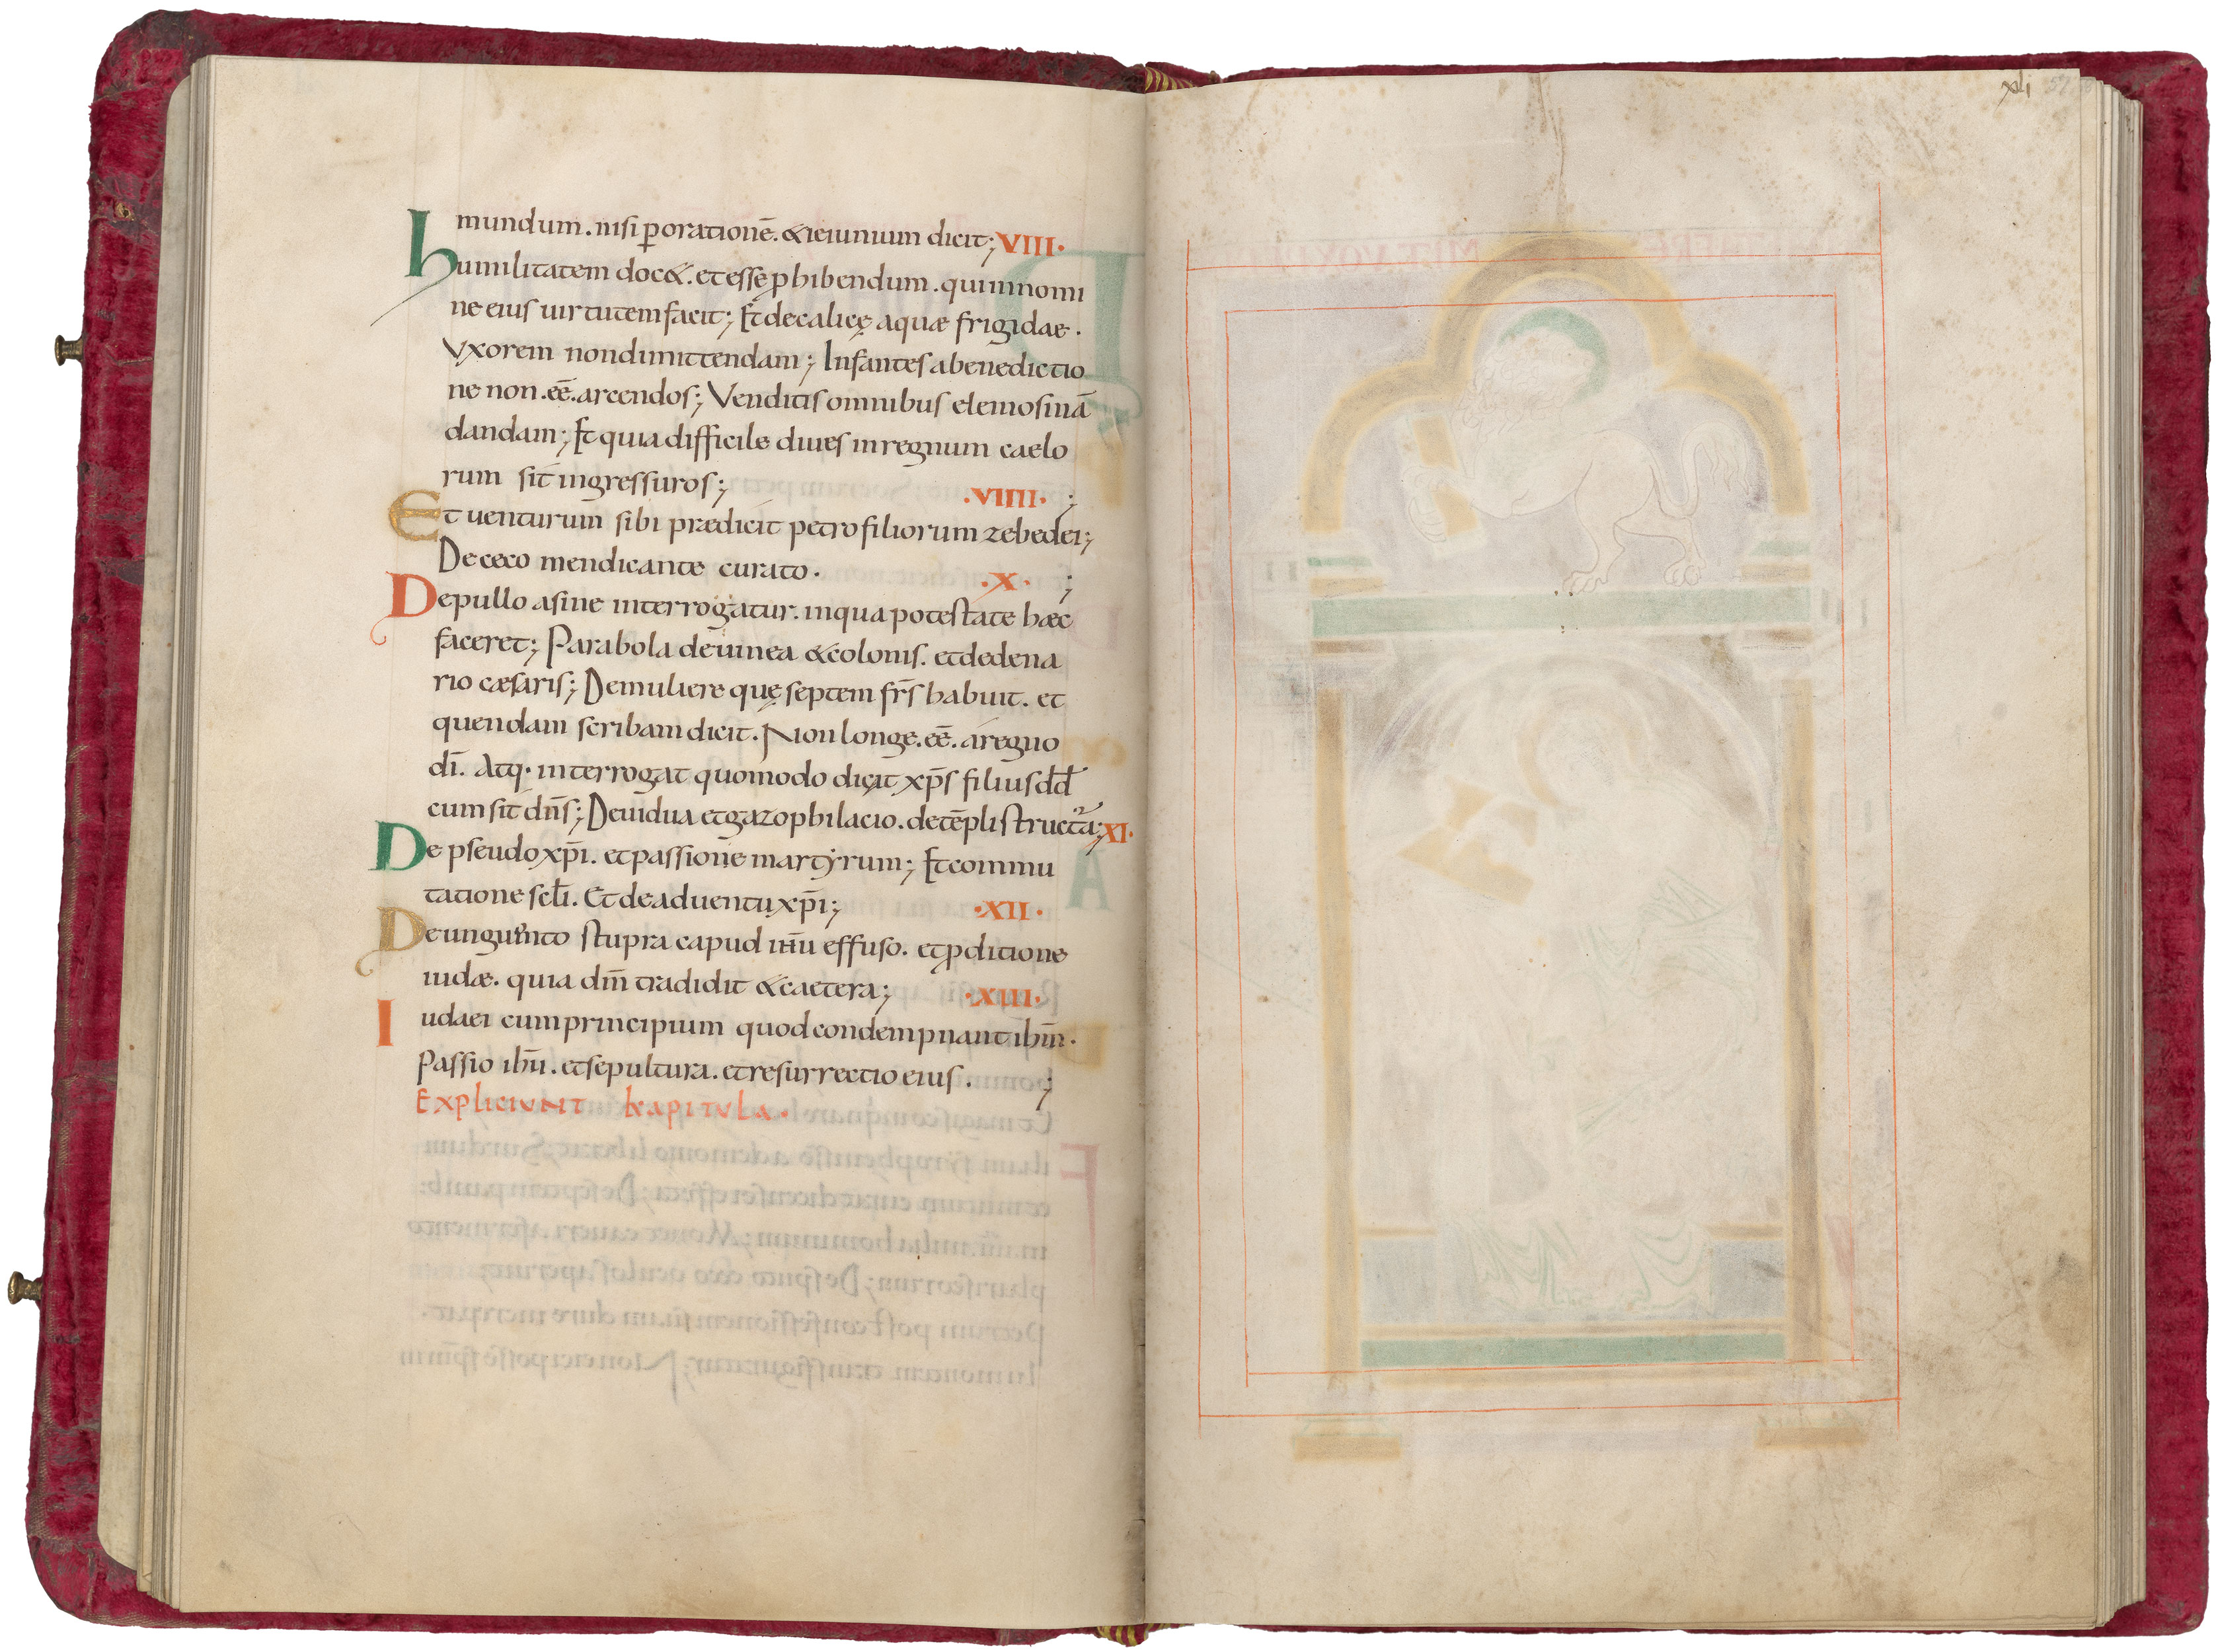 mundum. nisi ꝑ orationē. & ieiunium dicit; VIII·
humilitatem doc&. et esse ꝓhibendum. qui in nomi
ne eius uirtutem facit; Et de calicę aquæ frigidae.
Vxorem non dimittendam; Infantes a benedictio
ne non. eē. arcendos; Venditis omnibus elemosinā
dandam; Et quia difficile diues in regnum caelo
rum sit ingressuros; ·VIIII· ;
Et uenturum sibi prædicit petro filiorum zebedei;
De ceco mendicante curato. ·X· ;
De pullo asine interrogatur. in qua potestate hæc
faceret; Parabola de uinea & colonis. et de dena
rio cæsaris; De muliere quę septem fr̄s habuit. et
quendam scribam dicit. Non longe. eē. a regno
dī. Atq· interrogat quomodo dicit xp̄s filius dd̄
cum sit dn̄s; De uidua et gazophilacio. de tēpli structura; XI·
De pseudo xp̄i. et passione martyrum; Et commu
tatione scl̄i. Et de aduentu xp̄i; ·XII·
De unguento stupra capud ih̄u effuso. et ꝓditione
iudæ. quia dn̄m tradidit & caetera; ·XIII·
Iudaei cum principium quod condempnant ih̄m·
Passio ih̄u. et sepultura. et resurrectio eius. ;
Expliciunt kapitula·
xli
57